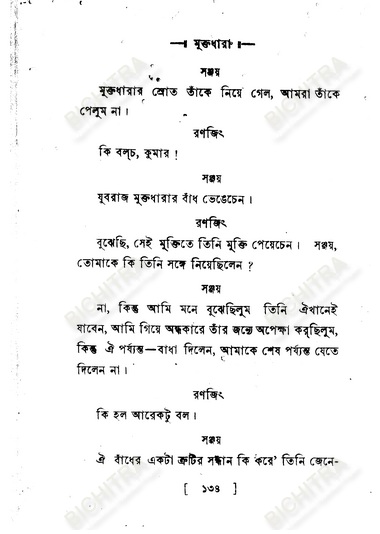 —৷ মুক্তধারা ৷—
সঞ্জয়
মুক্তধারার স্রোত তাঁকে নিয়ে গেল, আমরা তাঁকে
পেলুম না।
রণজিৎ
কি বল্‌চ, কুমার !
সঞ্জয়
যুবরাজ মুক্তধারার বাঁধ ভেঙেচেন।
রণজিৎ
বুঝেছি, সেই মুক্তিতে তিনি মুক্তি পেয়েচেন। সঞ্জয়,
তোমাকে কি তিনি সঙ্গে নিয়েছিলেন ?
সঞ্জয়
না, কিন্তু আমি মনে বুঝেছিলুম তিনি ঐখানেই
যাবেন, আমি গিয়ে অন্ধকারে তাঁর জন্যে অপেক্ষা কর্‌ছিলুম,
কিন্তু ঐ পর্য্যন্ত—বাধা দিলেন, আমাকে শেষ পর্য্যন্ত যেতে
দিলেন না।
রণজিৎ
কি হল আরেকটু বল।
সঞ্জয়
ঐ বাঁধের একটা ত্রুটির সন্ধান কি করে’ তিনি জেনে-
[ ১৩৪ ]
BICHITRA
BICHITRA
BICHITRA
BICHITRA
BICHITRA
BICHITRA